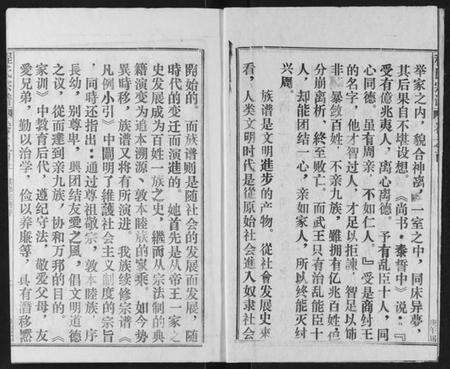 举家之内，貌合神离，一室之中，同床异夢，
其后果自不堪设想。《尚书·泰誓中》说：『
受有億兆夷人，离心離德，予有乱臣十人，同
心同德，虽有周亲，不如仁人。』受是商纣王
的名字，他才智过人，才足以拒諫，智足以飾
非，暴敛百姓，不亲九族，虽拥有亿兆百姓，
分崩离析，終至败亡。而武王只有治乱能臣十
人，却能团结一心，亲如家人，所以终能灭纣
兴周。
族谱是文明進步的产物。從社會发展史来
看，人类文明时代是從原始社会進入奴隶社会
開始的。族谱则是随社会的发展而发展，随
時代的变迁而演進的。她首先是从帝王一家之
史发展成为百姓一族之史，继而从宗法制的典
籍演变为追本溯源，敦本睦族的家乘。如今势
異時移，族谱又将有所演进。我族续修宗谱《
凡例小引》中闡明了維護社会主义制度的宗旨
，同時还指出：通过尊祖敬宗，敦本睦族，序
長幼，别尊卑，興团结友爱之風，倡文明道德
之议，從而達到亲九族，协和万邦的目的。《
家训》中教育后代，遵纪守法，敬爱父母，友
愛兄弟，勤以治学，俭以养廉等，具有潜移黙